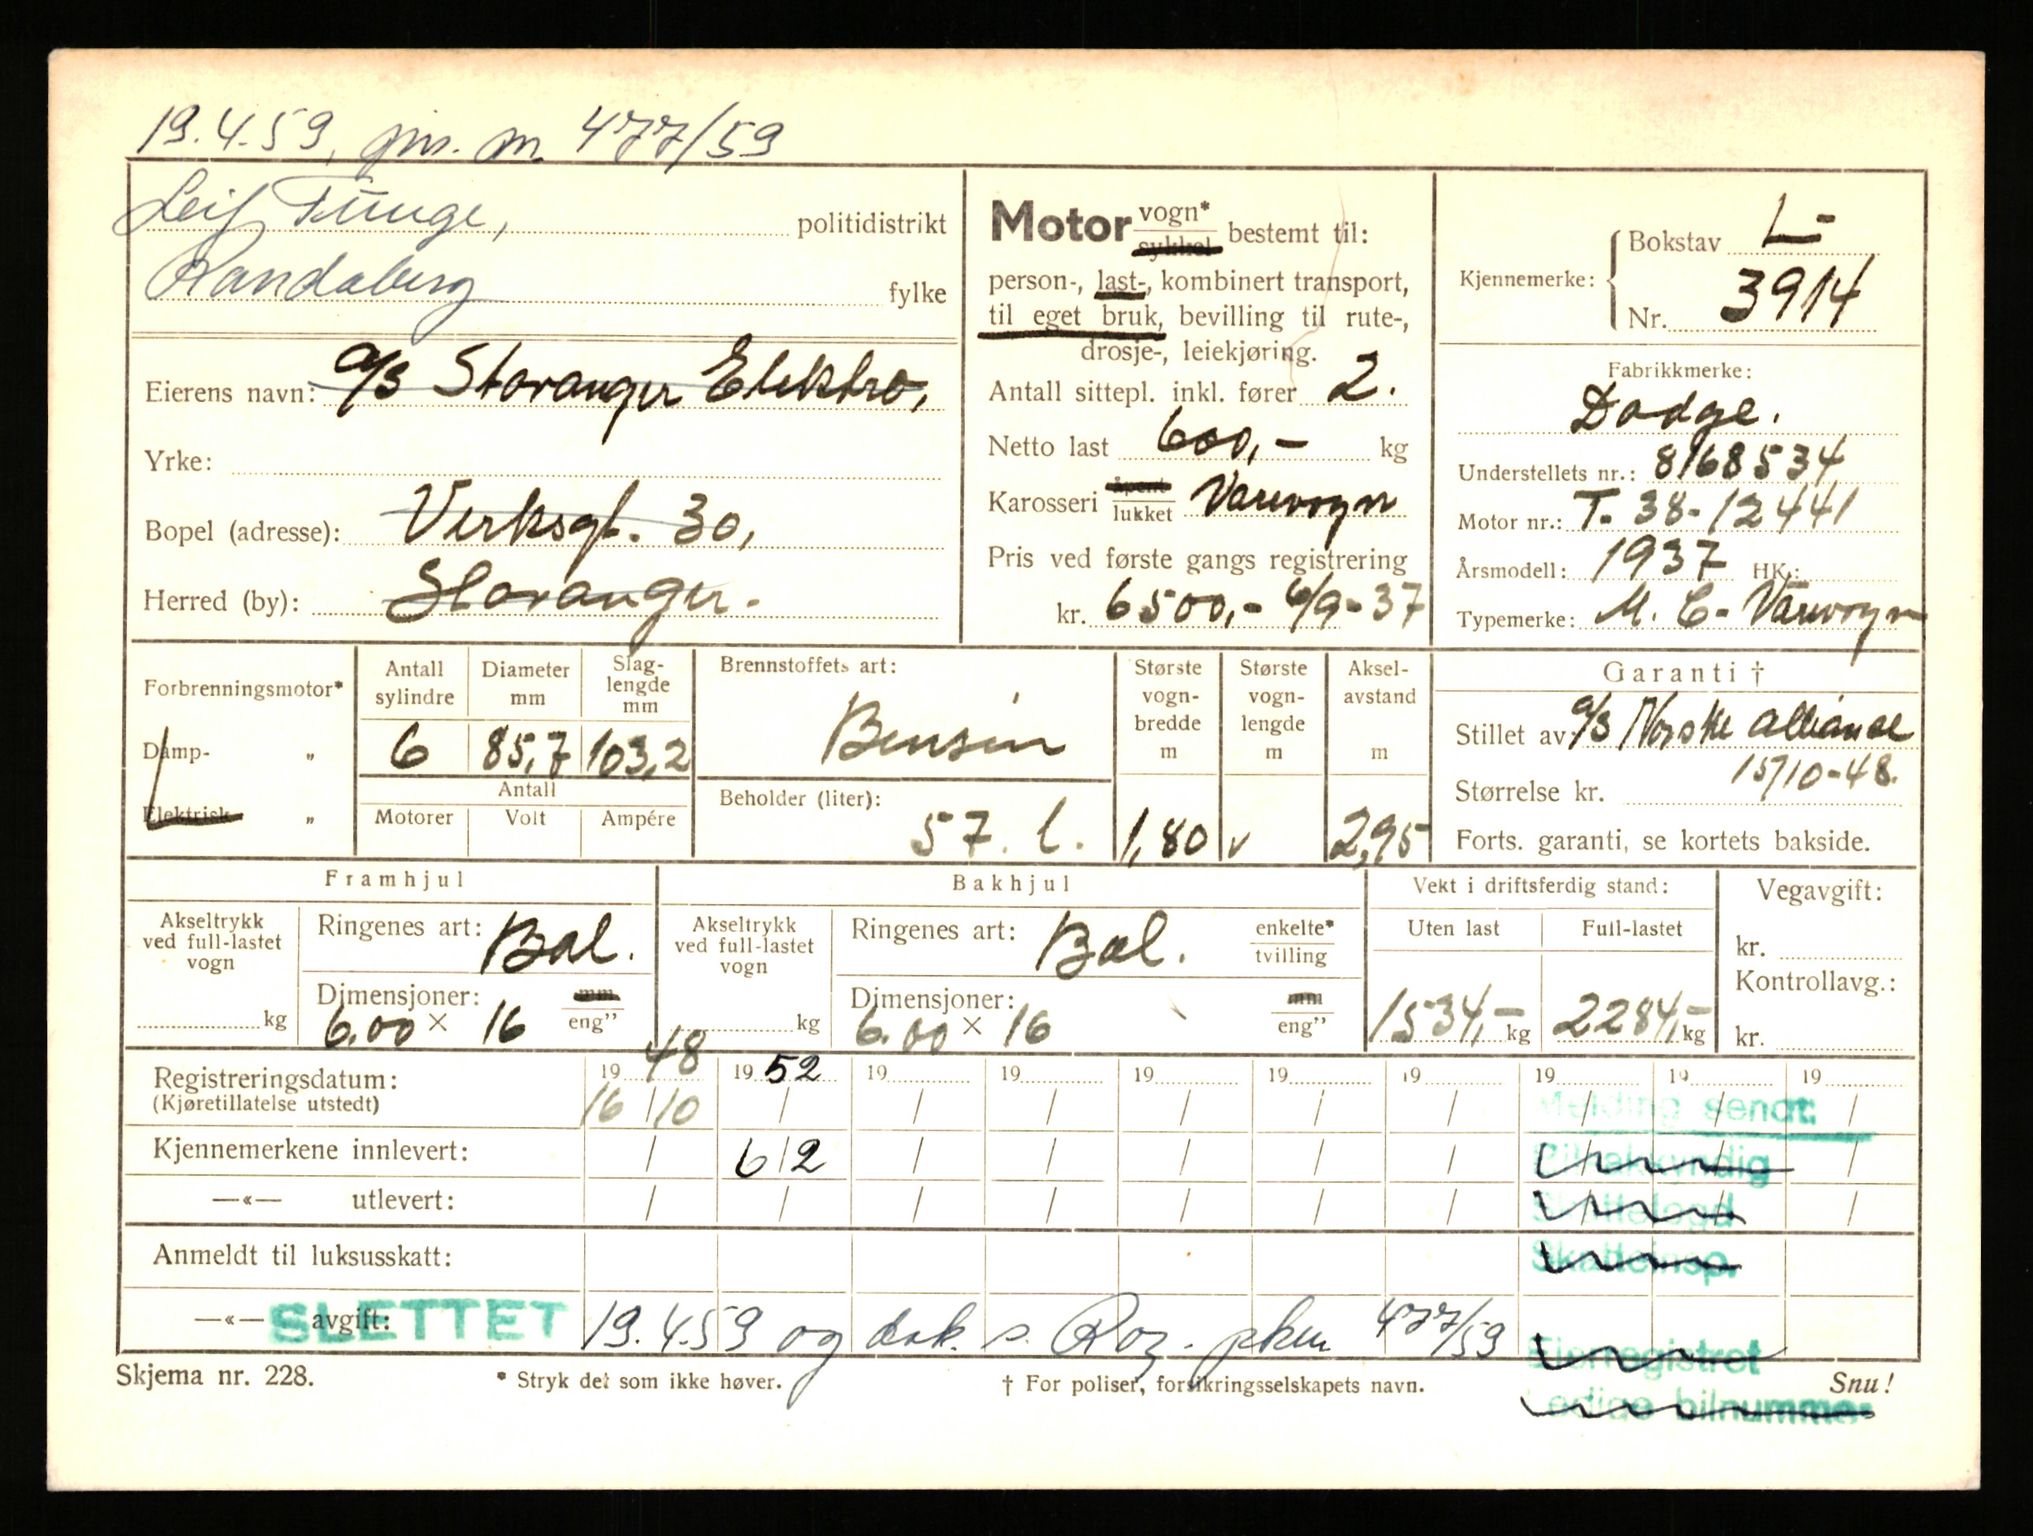 19.4.59, jns. m. 477/59
Leif Tunge, politidistrikt
Randaberg fylke
Eierens navn: a/s Stavanger Elektro,
Yrke:
Bopel (adresse): Verksgt. 30,
Herred (by): Stavanger.
Motor vogn* sykkel bestemt til:
person-, last-, kombinert transport,
til eget bruk, bevilling til rute-,
drosje-, leiekjøring.
Antall sittepl. inkl. fører 2.
Netto last 600,- kg
Karosseri åpent lukket Varevogn
Pris ved første gangs registrering
kr. 6500,- 6/9-37
Kjennemerke: Bokstav L-
Nr. 3914
Fabrikkmerke:
Dodge.
Understellets nr.: 8168534
Motor nr.: T. 38-12441
Årsmodell: 1937 HK.:
Typemerke: M. C- Varevogn
Forbrenningsmotor*
Damp- „
Elektrisk „
Antall sylindre
6
Diameter mm
85,7
Slag-lengde mm
103,2
Antall
Motorer Volt Ampére
Brennstoffets art:
Bensin
Beholder (liter):
57. l.
Største vogn-bredde m
1,80
Største vogn-lengde m
v
Aksel-avstand m
2,95
Garanti †
Stillet av a/s Norske alliance
15/10-48.
Størrelse kr.
Forts. garanti, se kortets bakside.
Framhjul
Akseltrykk ved full-lastet vogn
kg
Ringenes art: Bal.
Dimensjoner: mm
6.00 × 16 eng”
Bakhjul
Akseltrykk ved full-lastet vogn
kg
Ringenes art: Bal. enkelte* tvilling
Dimensjoner: mm
6.00 × 16 eng”
Vekt i driftsferdig stand:
Uten last Full-lastet
1534,- kg 2284,- kg
Vegavgift:
kr.
Kontrollavg.:
kr.
Registreringsdatum: 19 48 19 52 19 19 19 19 19 19 19 19
(Kjøretillatelse utstedt) 16/10 / / / / / / / / /
Melding sendt:
Kjennemerkene innlevert: / 6/2 / / / / / / / /
Bilsakkyndig
—«— utlevert: / / / / / / / / / /
Skattefogd
Anmeldt til luksusskatt:
Skatteinsp.
—«— avgift: SLETTET 19.4.59 og dek. s. Rog. pkm 477/59
Eierregistret
Skjema nr. 228. * Stryk det som ikke høver. † For poliser, forsikringsselskapets navn. Snu!
Ledige bilnummer